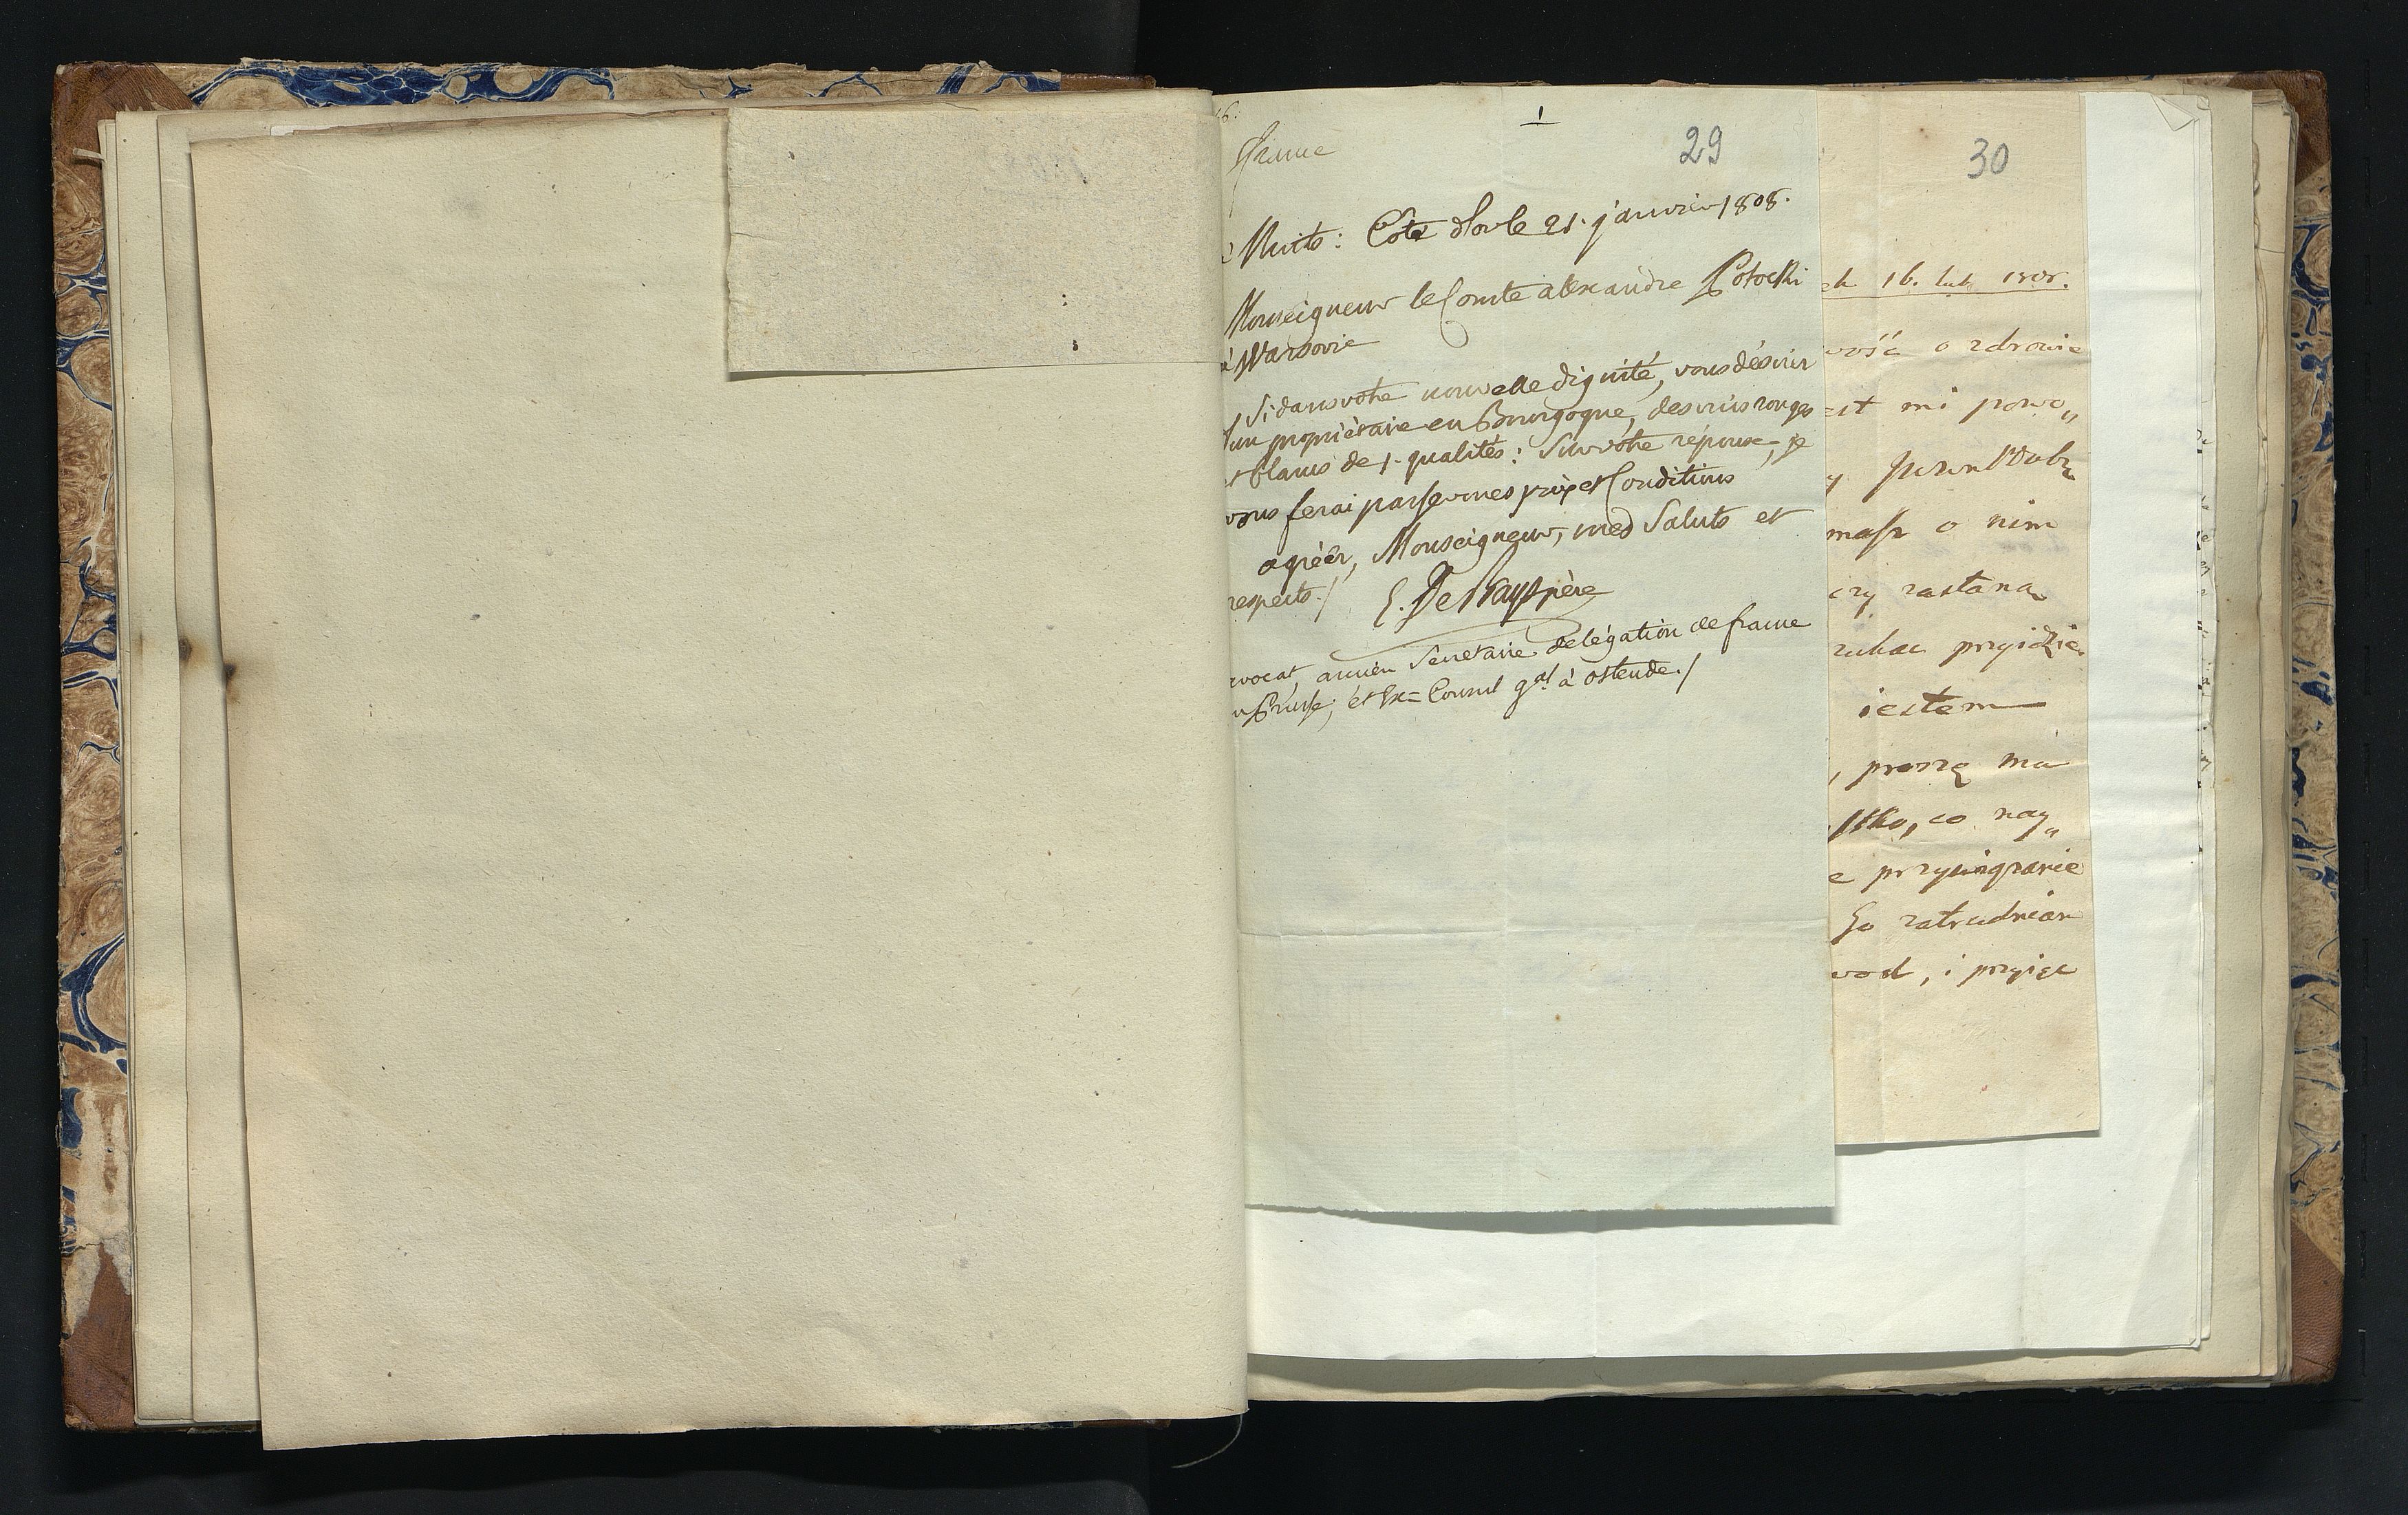 1
29
france
Nuits: Côte d'or le 21. janvier 1808.
Monseigneur le Comte alexandre Potocki
à Warsovie
Si dans votre nouvelle dignité, vous désirés
d'un propriétaire en Bourgogne, des vins rouges
et blancs de 1. qualités: Sur votre réponse, je
vous ferai passer mes prix et Conditions
agréér, Monseigneur, mes Saluts et
respects./
avocat, ancien Secrétaire delégation de france
en Prusse, et Ex=Consul gal. à ostende./
30
16. lut. 1808.
wość o zdrowie
est mi powo„
masz o nim
czy zastana
przyidzie
iestem
, proszę ma
stko, co nay„
e
Go zatrudnien
wod, i przyięc